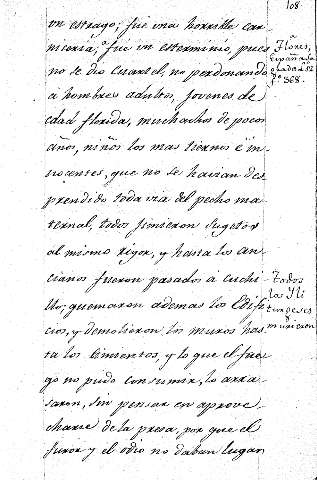 108.
un estrago; fue una horrible car-
niceria, o fue un esterminio, pues
no se dio cuartel, no perdonando
a hombres adultos, jovenes de
edad florida, muchachos de pocos
años, niños los mas tiernos è in-
nocentes, que no se havian des
prendido toda via del pecho ma-
ternal, todos fueron sugetos
al mismo rigor, y hasta los an-
cianos fueron pasados a cuchi
llo; quemaron ademas los Edifi-
cios, y demolieron los muros has-
ta los Cimientos, y lo que el fue-
go no pudo consumir, lo arra-
saron, sin pensar en aprove-
charse de la presa, por que el
furor y el odio no daban lugar
Flores,
España
fo 368.
Todos
los Ili
turgeses
murieron